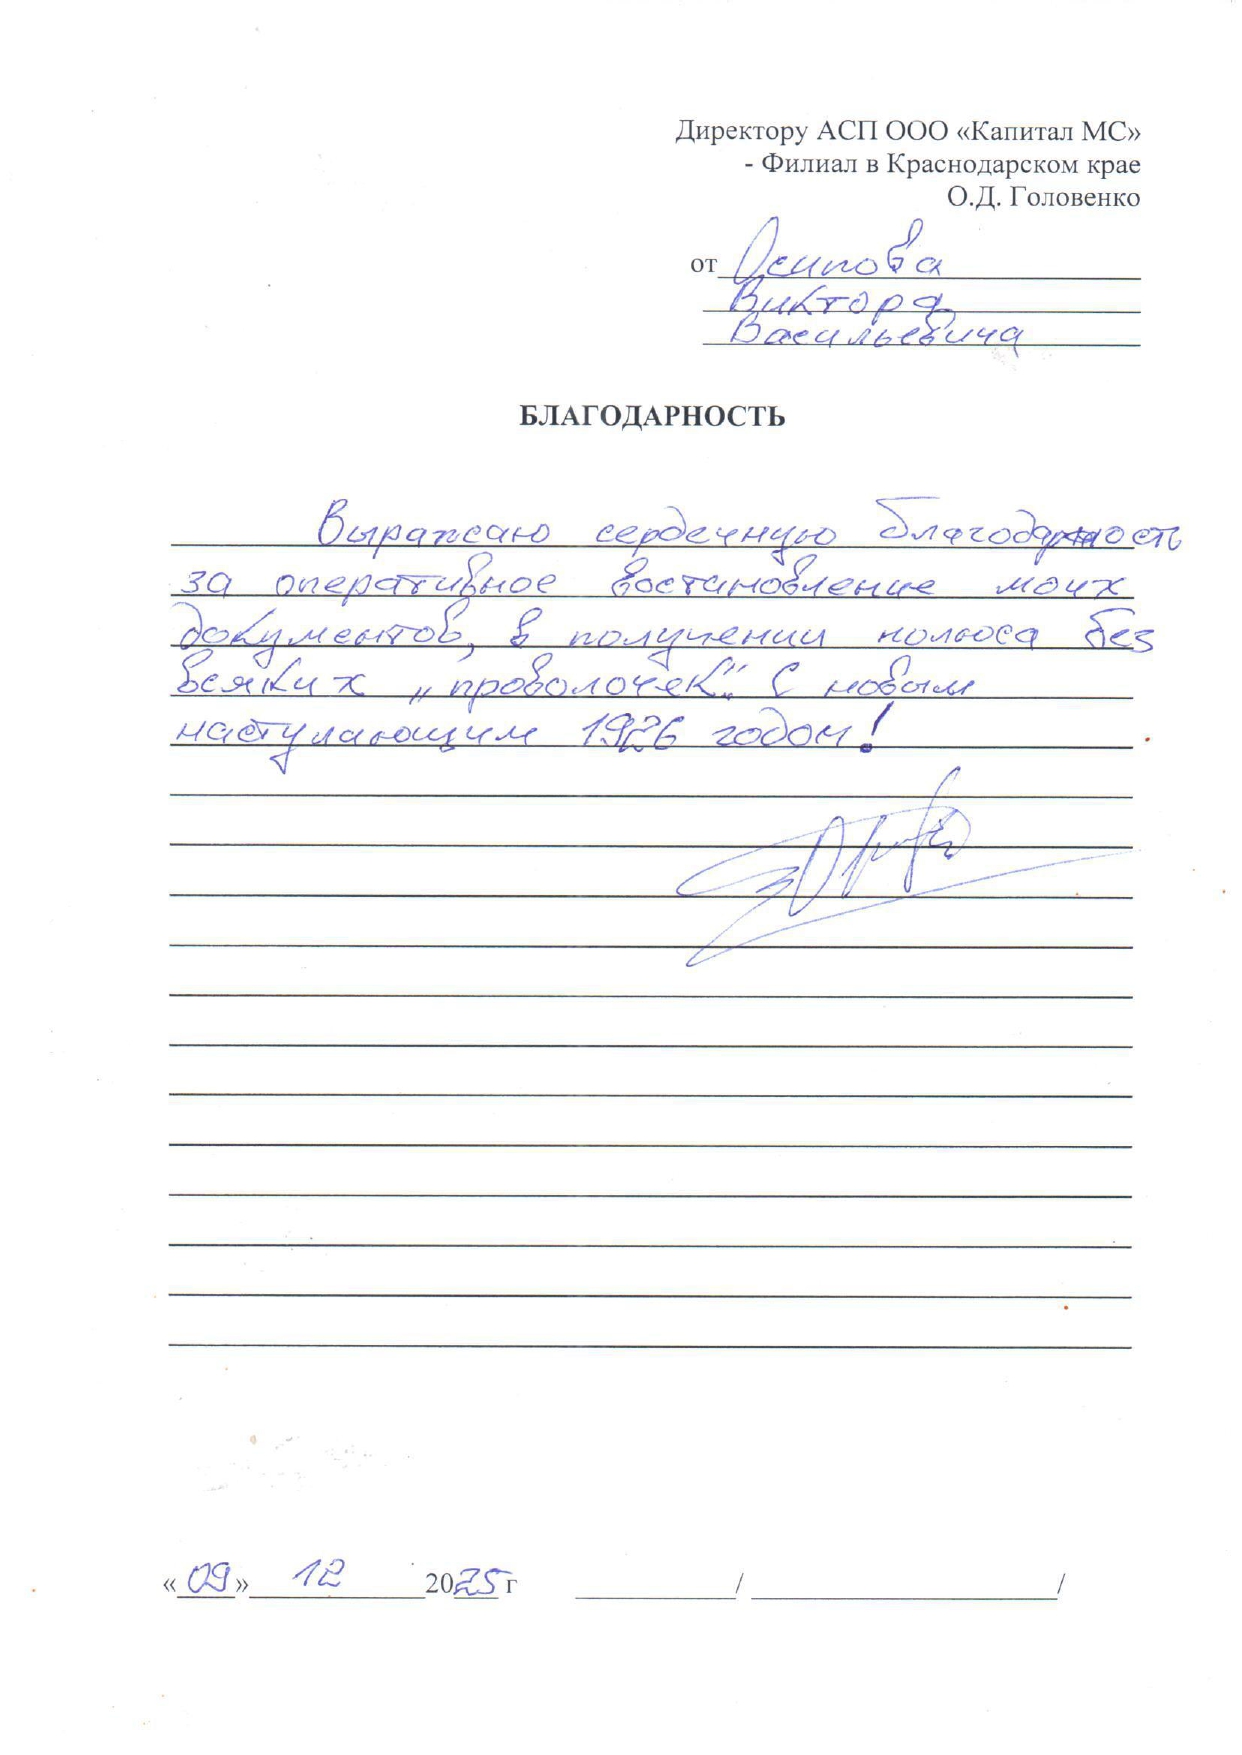 Директору АСП ООО «Капитал МС»
- Филиал в Краснодарском крае
О.Д. Головенко
от Осипова
Виктора
Васильевича
БЛАГОДАРНОСТЬ
Выражаю сердечную благодарность
за оперативное востановление моих
документов, в получении полюса без
всяких „проволочек“. С новым
наступающим 1926 годом!
«09» 12 2025 г / /